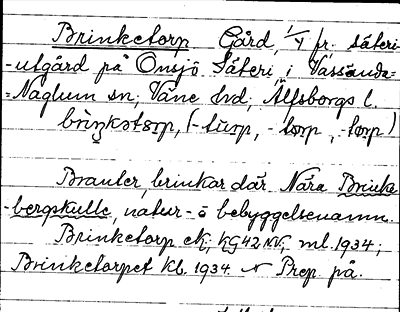 Brinketorp Gård, 1/4 fr. säteri-
-utgård på Onsjö Säteri, i Vassända=
=Naglum sn; Väne hd; Älfsborgs l.
brìŋkətɔrp, (-tùrp, -tørp, -tørp)
Branter, brinkar där. Nära Brinke-
-bergskulle, natur- o bebyggelsenamn.
Brinketorp ek; kG 42 NV, ml. 1934;
Brinketorpet kb. 1934. Prep. på.